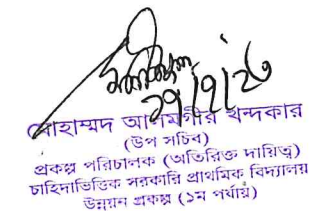 ২৭/৭/২৩
মোহাম্মদ আলমগীর খন্দকার
(উপ সচিব)
প্রকল্প পরিচালক (অতিরিক্ত দায়িত্ব)
চাহিদাভিত্তিক সরকারি প্রাথমিক বিদ্যালয়
উন্নয়ন প্রকল্প (১ম পর্যায়)